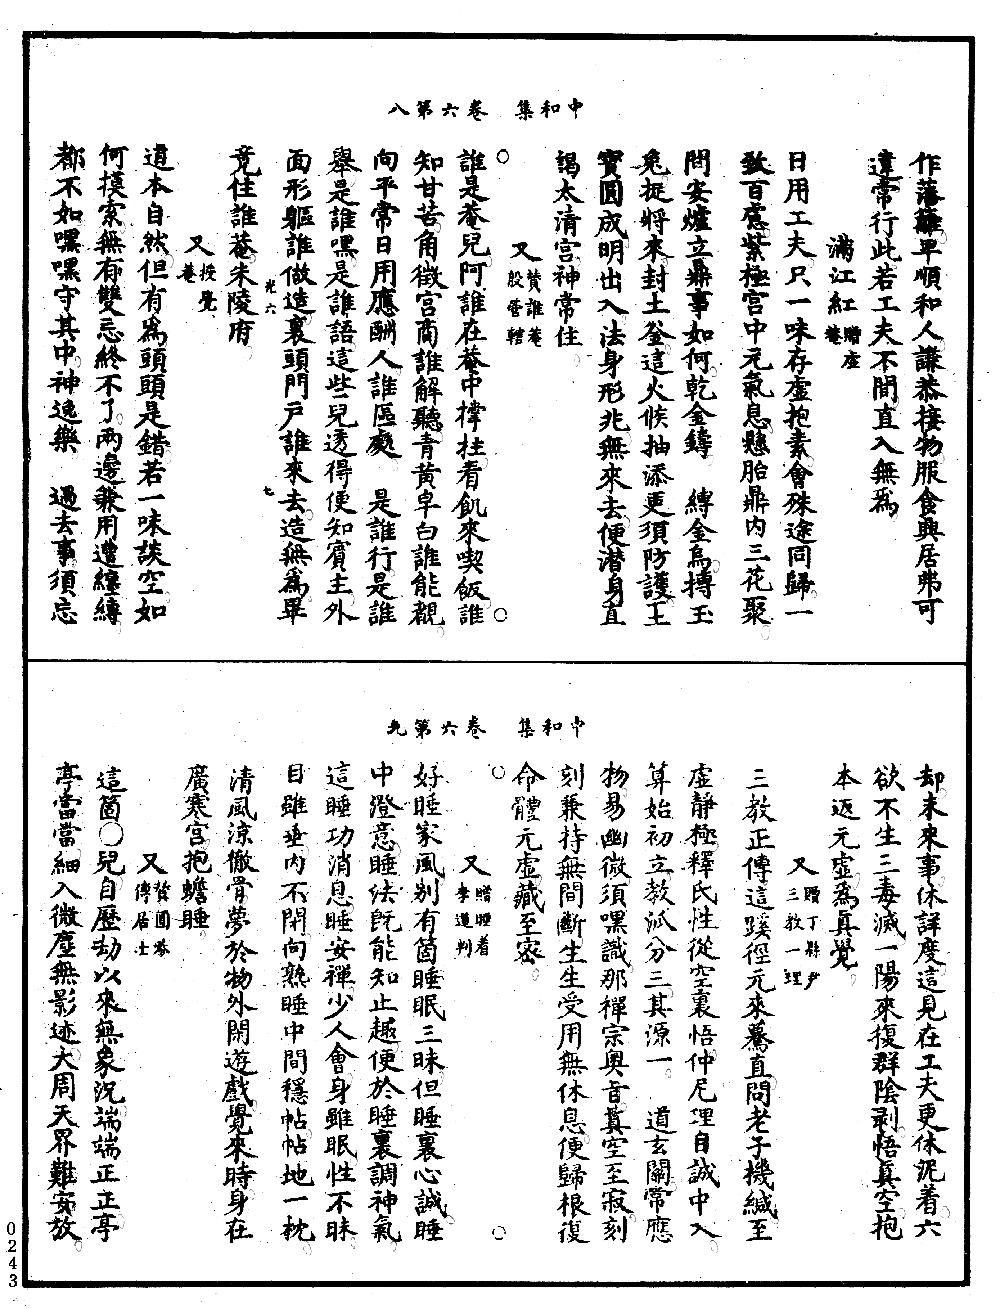 中和集　卷六第八
作落籬卑順和人謙恭接物服食興居弗可
違常行此若工夫不間直入無為
滿江紅贈密庵
日用工夫只一味存虛抱素會殊途同歸一
致百慮紫極宮中元氣息懸胎鼎內三花聚
問安爐立鼎事如何乾金鑄　縛金烏搏玉
兔捉將來封土釜這火候抽添更須防護至
寶圓成明出入法身形兆無來去便潛身直
謁太清宮神常住
又贊誰庵殷管轄
○誰是庵兒阿誰在庵中撑拄看飢來喫飯誰○
知甘苦角徵宮商誰解聽青黃皁白誰能覩
向平常日用應酬人誰區處　是誰行是誰
舉是誰嘿是誰語這些兒透得便知賓主外
面形軀誰做造裏頭門戶誰來去造無為畢
光六　七
竟住誰庵朱陵府
又授覺庵
道本自然但有為頭頭是錯若一味談空如
何摸索無有雙忘終不了兩邊兼用遭纏縛
都不如嘿嘿守其中神逸樂　過去事須忘
中和集　卷六第九
却未來事休詳度這見在工夫更休泥着六
欲不生三毒滅一陽來復群陰剥悟真空抱
本返元虛為真覺
又贈丁縣尹三教一理
三教正傳這蹊徑元來驀直問老子機緘至
虛靜極釋氏性從空裏悟仲尼理自誠中入
算始初立教派分三其源一　道玄關常應
物易幽微須嘿識那禪宗奧旨真空至寂刻
刻兼持無間斷生生受用無休息便歸根復
命體元虛藏至密
又贈睡者李道判
○好睡家風别有箇睡眠三昧但睡裏心誠睡○
中澄意睡法旣能知止趣便於睡裏調神氣
這睡功消息睡安禪少人會身雖眠性不昧
目雖垂內不閉向熟睡中間穩帖帖地一枕
清風涼徹骨夢於物外閑遊戲覺來時身在
廣寒宮抱蟾睡
又贊圓菴傅居士
這箇○兒自歷劫以來無象況端端正正亭
亭當當細入微塵無影迹大周天界難安放
0243